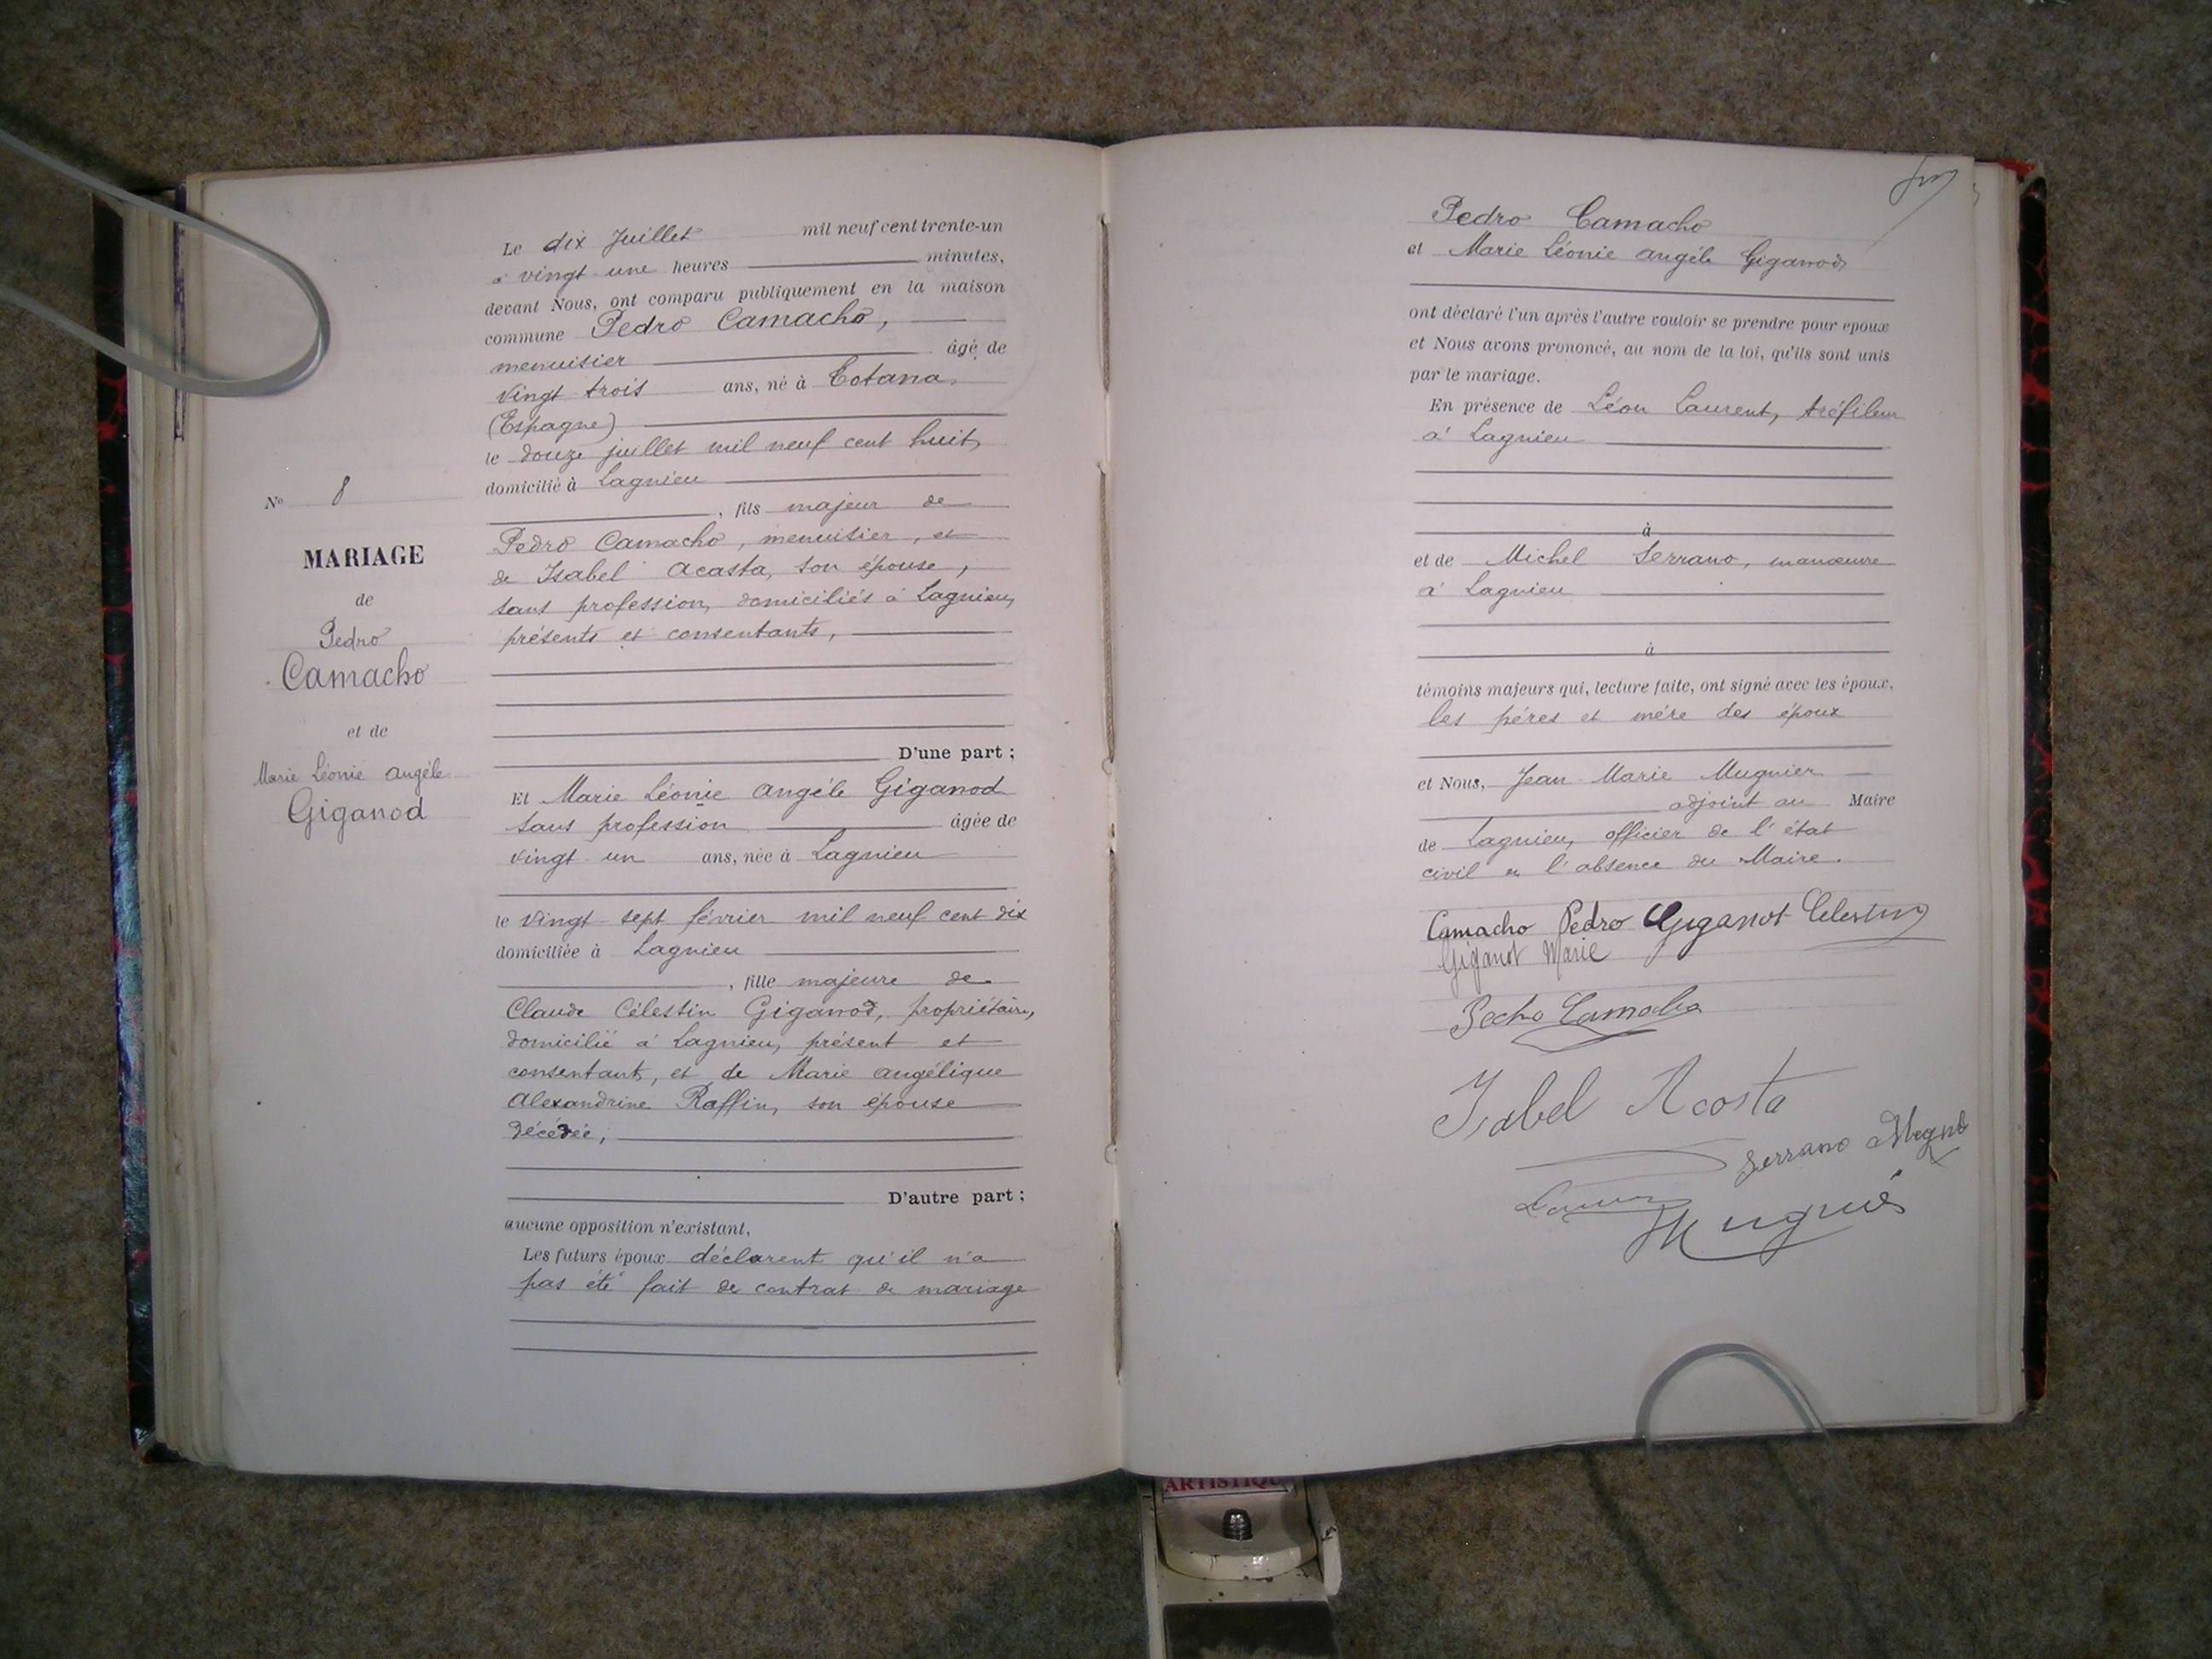 Le dix Juillet mil neuf cent trente-un
à vingt une heures minutes,
devant Nous, ont comparu publiquement en la maison
commune Pedro Camacho,
menuisier âgé de
vingt trois ans, né à Totana
(Espagne)
le douze juillet mil neuf cent huit
domicilié à Lagnieu
, fils majeur de
Pedro Camacho, menuisier, et
de Isabel Acasta, son épouse,
sans profession, domiciliés à Lagnieu,
présents et consentants,
D'une part ;
Et Marie Léonie Angèle Giganod
sans profession âgée de
vingt un ans, née à Lagnieu
le vingt sept février mil neuf cent dix
domiciliée à Lagnieu
, fille majeure de
Claude Célestin Giganod, propriétaire,
domicilié à Lagnieu, présent et
consentant, et de Marie Angélique
Alexandrine Raffin, son épouse
décédée,
D'autre part ;
aucune opposition n'existant.
Les futurs époux déclarent qu'il n'a
pas été fait de contrat de mariage
No 8
MARIAGE
de
Pedro
Camacho
et de
Marie Léonie Angèle
Giganod
Pedro Camacho
et Marie Léonie Angèle Giganod
ont déclaré l'un après l'autre vouloir se prendre pour époux
et Nous avons prononcé, au nom de la loi, qu'ils sont unis
par le mariage.
En présence de Léon Laurent, tréfileur
à Lagnieu
à
et de Michel Serrano, manœuvre
à Lagnieu
à
témoins majeurs qui, lecture faite, ont signé avec les époux,
les pères et mère des époux
et Nous, Jean Marie Mugnier
adjoint au Maire
de Lagnieu, officier de l'état
civil en l'absence du Maire.
Camacho Pedro Giganot Celestin
Giganot Marie
Pedro Camacho
Isabel Acosta
Serrano
Mugnier
ARTISTIQUE